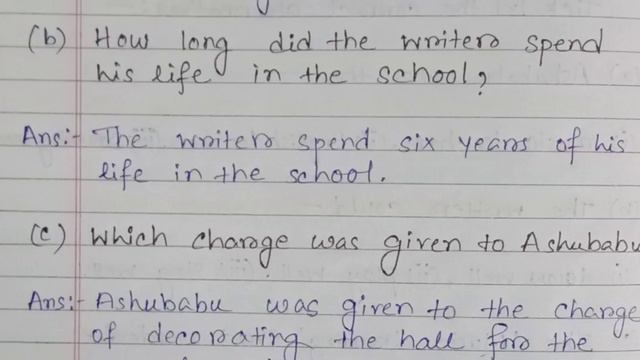 (b) How long did the writer spend
his life in the school?
Ans:- The writer spend six years of his
life in the school.
(c) Which charge was given to Ashubabu
Ans:- Ashubabu was given to the charge
of decorating the hall for the